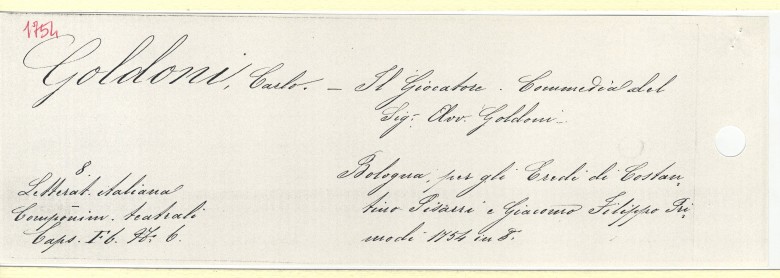 1754
Goldoni, Carlo. — Il Giocatore. Commedia del
Sig.r Avv. Goldoni —
Bologna, per gli Eredi di Costan-
tino Pisarri e Giacomo Filippo Pri-
modì 1754 in 8.
8.
Letterat. italiana
Componim. teatrali
Caps. F6. N. 6.